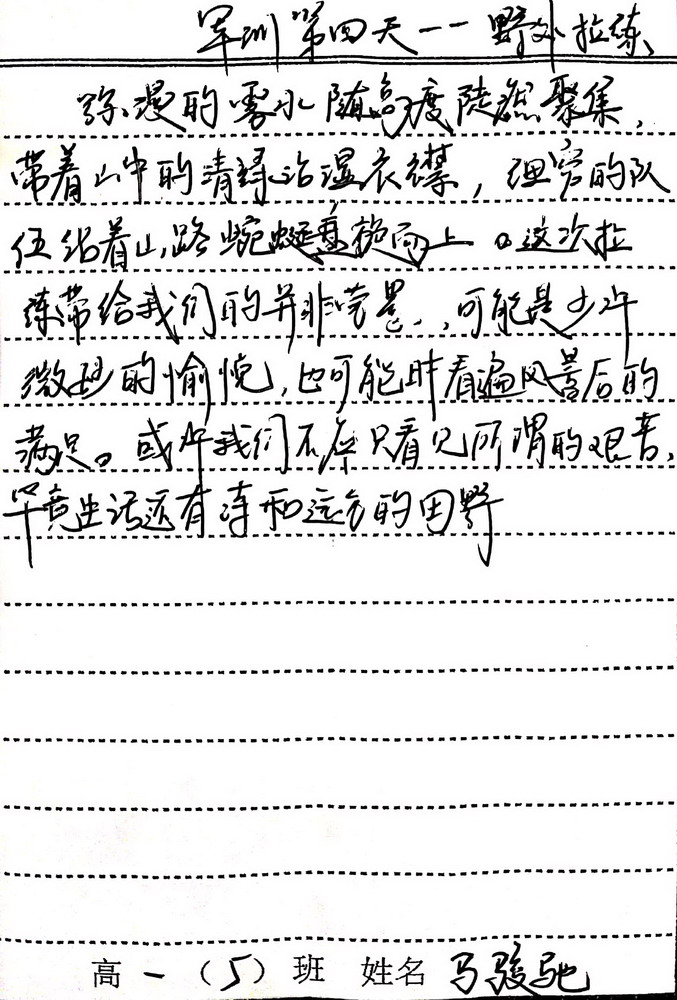 军训第四天——野外拉练
弥漫的雾水随高度陡然聚集，
带着山中的清绿沾湿衣襟，的队
伍沿着山路蜿蜒而上。这次拉
练带给我们的并非荣誉，可能是少许
微妙的愉悦，也可能时看遍风景后的
满足。或许我们不应只看见所谓的艰苦，
毕竟生活还有诗和远方的田野
高一（5）班 姓名 马骏驰